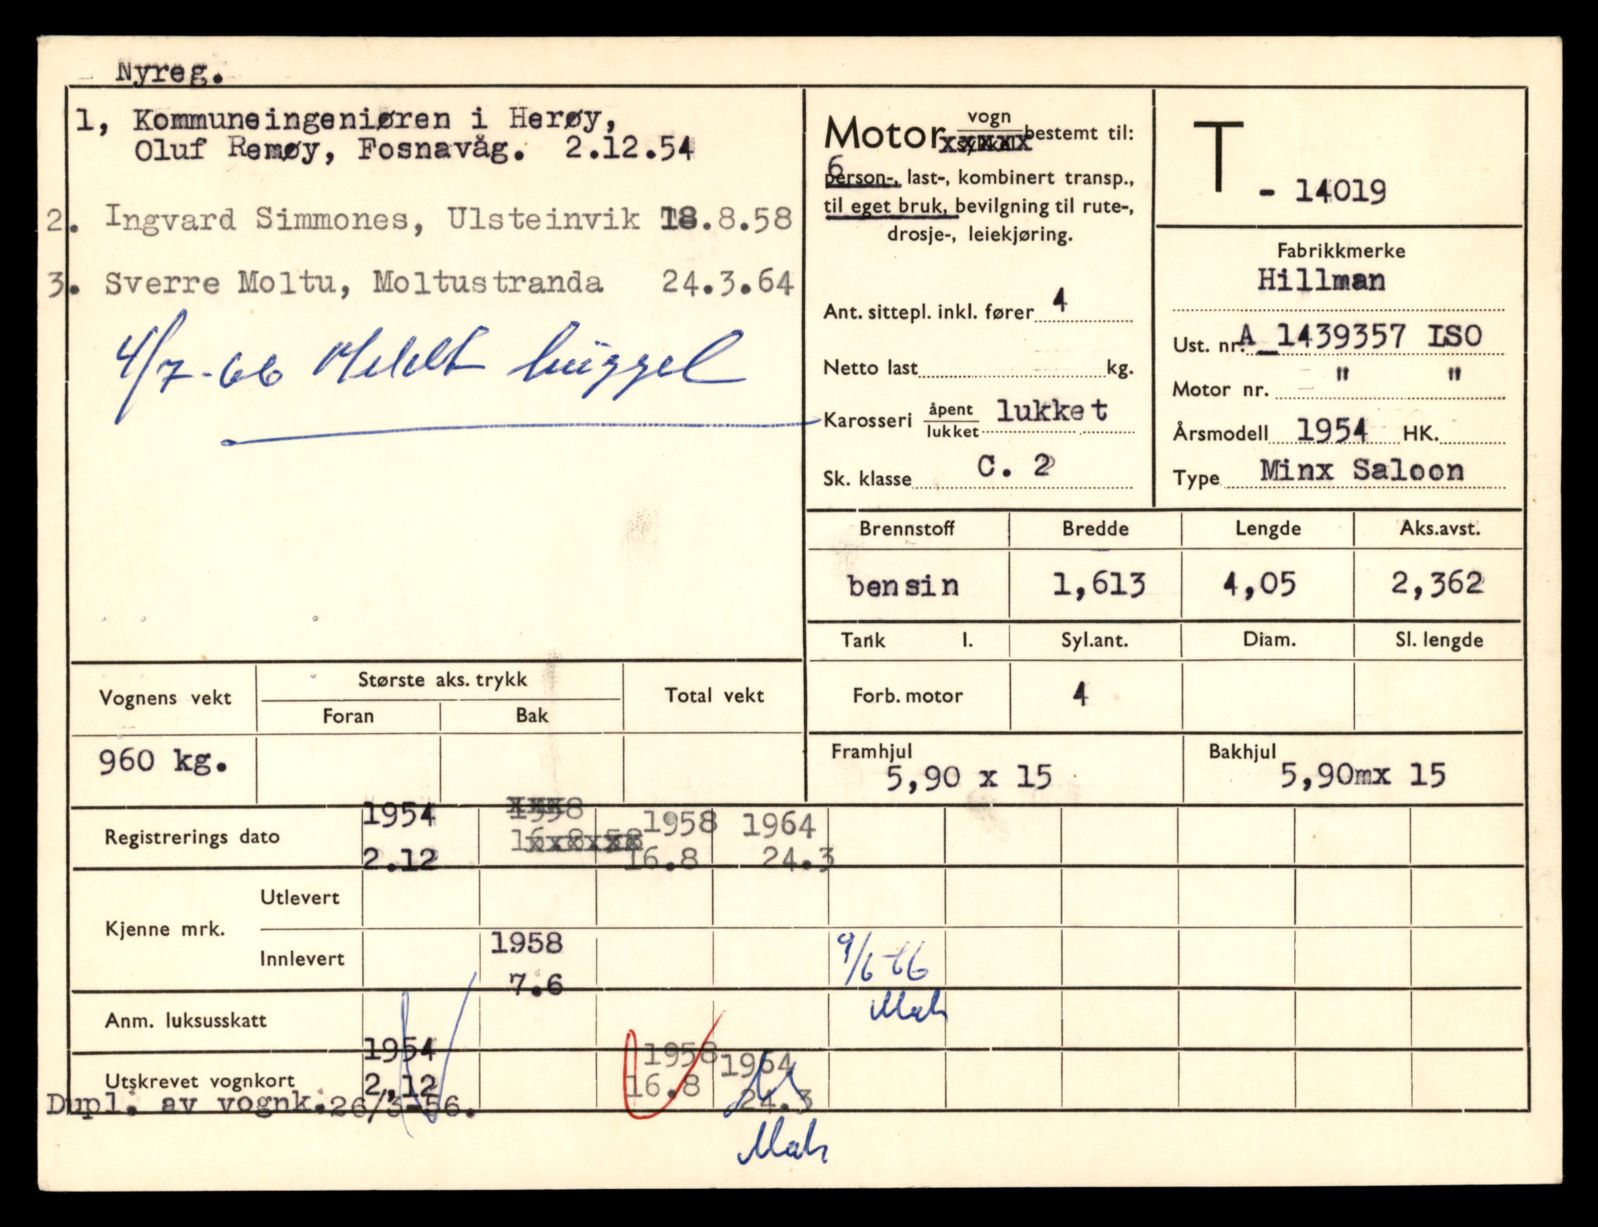 Nyreg.
1, Kommuneingeniøren i Herøy,
Oluf Remøy, Fosnavåg. 2.12.54
2. Ingvard Simmones, Ulsteinvik 18.8.58
3. Sverre Moltu, Moltustranda 24.3.64
4/7-66 Meldt
Motor vogn bestemt til:
6
person-, last-, kombinert transp.,
til eget bruk, bevilgning til rute-,
drosje-, leiekjøring.
Ant. sittepl. inkl. fører 4
Netto last kg.
Karosseri åpent lukket lukket
Sk. klasse C. 2
T - 14019
Fabrikkmerke
Hillman
Ust. nr. A_1439357 LSO
Motor nr. " "
Årsmodell 1954 HK.
Type Minx Saloon
Brennstoff Bredde Lengde Aks.avst.
bensin 1,613 4,05 2,362
Tank l. Syl.ant. Diam. Sl. lengde
Forb. motor 4
Framhjul Bakhjul
5,90 x 15 5,90mx 15
Vognens vekt Største aks. trykk Total vekt
Foran Bak
960 kg.
Registrerings dato 1954 1958 1958 1964
2.12 16.8.58 16.8 24.3
Kjenne mrk. Utlevert
Innlevert 1958 9/6-66
7.6
Anm. luksusskatt
Utskrevet vognkort 1954 1958 1964
2,12 16.8 24.3
Dupl. av vognk. 26/3-56.